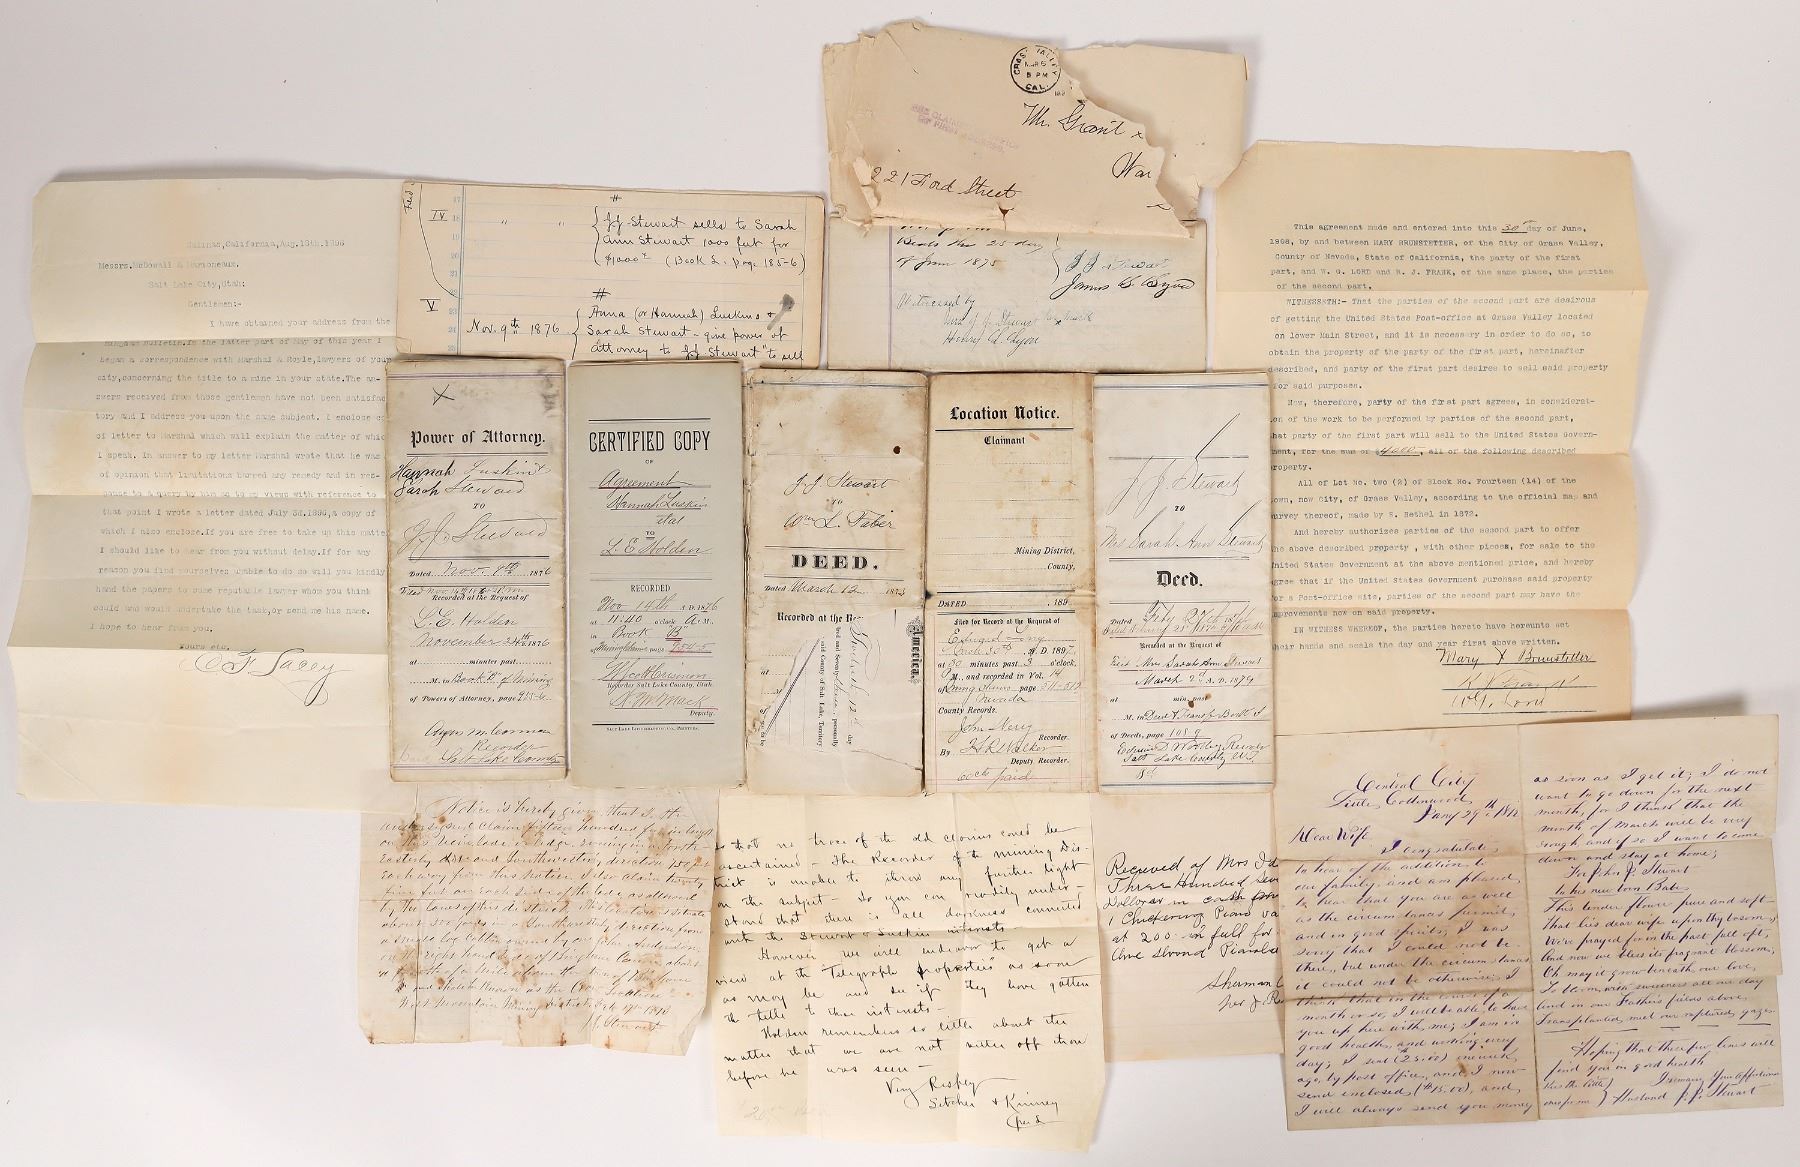 Salinas,California,Aug.18th.1896
Messrs.McDowall & Marioneaux.
Salt Lake City,Utah:
Gentlemen:-
I have obtained your address from the
Bulletin.In the latter part of May of this year I
began a correspondence with Marshal & Royle,lawyers of your
city,concerning the title to a mine in your state.The an-
swers received from those gentlemen have not been satisfac
tory and I address you upon the same subject. I enclose co
of letter to Marshal which will explain the matter of whic
I speak. In answer to my letter Marshal wrote that he was
of opinion that limitations barred any remedy and in res-
to a query by him as to my views with reference to
that point I wrote a letter dated July 3d.1896,a copy of
which I also enclose.If you are free to take up this matte
I should like to hear from you without delay.If for any
reason you find yourselves unable to do so will you kindly
hand the papers to some reputable lawyer whom you think
could and would undertake the task,or send me his name.
I hope to hear from you.
Yours etc.
C F Lacey
Field
17
IV 18
#
" "
J.J. Stewart sells to Sarah
Ann Stewart 1000 feet for
$1000 (Book L. page 185-6)
22
V
23
24
25
#
Nov. 9th 1876
Anna (or Hannah) Luskins &
Sarah Stewart - give power of
Attorney to J.J. Stewart "to sell
GRASS VALLEY
MAR 5
5 PM
CAL.
Mr. Grant
War
221 Ford Street
25 day
of June 1875
J J Stewart
James G. Bryon
Witnessed by
J. J. Stewart
mark
Henry
This agreement made and entered into this 30th day of June,
1908, by and between MARY BRUNSTETTER, of the City of Grass Valley,
County of Nevada, State of California, the party of the first
part, and W. G. LORD and R. J. FRANK, of the same place, the parties
of the second part.
WITNESSETH:- That the parties of the second part are desirous
of getting the United States Post-office at Grass Valley located
on lower Main Street, and it is necessary in order to do so, to
obtain the property of the party of the first part, hereinafter
described, and party of the first part desires to sell said property
for said purposes.
Now, therefore, party of the first part agrees, in considerat-
ion of the work to be performed by parties of the second part,
that party of the first part will sell to the United States Govern-
ment, for the sum of $4000, all of the following described
property.
All of Lot No. two (2) of Block No. Fourteen (14) of the
town, now City, of Grass Valley, according to the official map and
survey thereof, made by S. Bethel in 1872.
And hereby authorizes parties of the second part to offer
the above described property , with other pieces, for sale to the
United States Government at the above mentioned price, and hereby
agree that if the United States Government purchase said property
for a Post-office site, parties of the second part may have the
improvements now on said property.
IN WITNESS WHEREOF, the parties hereto have hereunto set
their hands and seals the day and year first above written.
Mary X Brunstetter
R J Frank
W G. Lord
X
Power of Attorney.
Hannah Luskins &
Sarah Steward
TO
J. J. Steward
Dated Nov. 9th 1876
Recorded at the Request of
L. E. Holden
November 24th 1876
at minutes past
M. in Book "F" of Mining
of Powers of Attorney, page
Recorder
Salt Lake County
CERTIFIED COPY
OF
Agreement
Hannah Luskin
et al
TO
L E Holden
RECORDED
Nov 14th A.D. 1876
at 11:40 o'clock A.M.
in Book "B"
page 754-5
Recorder Salt Lake County, Utah.
Deputy.
SALT LAKE LITHOGRAPHING CO., PRINTERS.
J. J. Stewart
TO
Wm L. Faber
DEED.
Dated March 12 187
Recorded at the Re
12th day
personally
said County of Salt Lake, Territory
America,
Location Notice.
Claimant
Mining District,
County,
DATED , 189
Filed for Record at the Request of
Edward
30th A. D. 1897
at 30 minutes past 3 o'clock,
M., and recorded in Vol. 14
of page 511-512
Nevada
County Records.
John Nery
Recorder.
By F L R Walker
Deputy Recorder.
60cts paid
J J Stewart
TO
Mrs Sarah Ann Stewart
Deed.
Dated
Recorded at the Request of
Mrs Sarah Ann Stewart
March 2d A. D. 1874
at min. past
M. in Deed & Transfer Book
of Deeds, page
Salt Lake County U.T.
Notice is hereby given that I the
undersigned claim fifteen hundred feet
on this vein lode or ledge running in a North-
easterly and Southwesterly direction 750 feet
each way from this notice I also claim twenty
five feet on each side of the lode as allowed
by the laws of this district
about 300 yards in a Southwesterly direction from
a house
on the right hand side of Bingham Canyon about
West Mountain Mining District
J J Stewart
so that no trace of the old claims could be
ascertained - The Recorder of the mining Dis-
trict is unable to throw any further light
on the subject - So you can readily under-
stand that there is all darkness connected
with the Stewart & Luskin interests -
However we will endeavor to get a
view at the "Telegraph properties" as soon
as may be and see if they have gotten
the title to these interests -
Holden remembers so little about the
matter that we are not better off than
before he was seen -
Very Respty
& Kinney
Received of Mrs
Three Hundred
Dollars in cash
1 Chickering Piano
at 200 - in full for
One Second
Sherman
per J.
Central City
Little Cottonwood
Jany 29th 187
Dear Wife
I congratulate,
to hear of the addition to
our family, and am pleased
to hear that you are as well
as the circumstances permit,
and in good spirits; I was
sorry that I could not be
there, but under the circumstances
it could not be otherwise; I
think that in the course of a
month or so, I will be able to have
you up here with me; I am in
good health, and working every
day; I sent ($25.00) one week
ago, by post office, and I now
send enclosed, ($15.00), and
I will always send you money
as soon as I get it; I do not
want to go down for the next
month, for I think that the
month of March will be very
rough, and if so I want to come
down and stay at home;
For John J. Stewart
to his new born Babe
This tender flower pure and soft
That lies dear wife upon thy bosom,
We've prayed for in the past full oft,
And now we bless its fragrant blossom,
Oh may it grow beneath our love,
To bloom, with sweetness all our day
And in our Father's fields above,
Transplanted, meet our raptured gaze.
Hoping that these few lines will
find you in good health
Kiss the little
one for me
I remain Your Affectionate
Husband J. J. Stewart